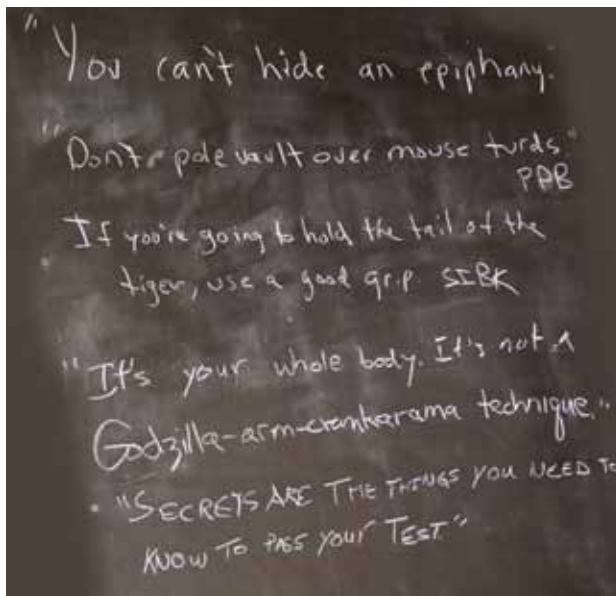 "You can't hide an epiphany.
"Don't pole vault over mouse turds"
PDB
If you're going to hold the tail of the
tiger, use a good grip. SIBK
"It's your whole body. It's not a
Godzilla-arm-crankarama technique."
• "SECRETS ARE THE THINGS YOU NEED TO
KNOW TO PASS YOUR TEST"